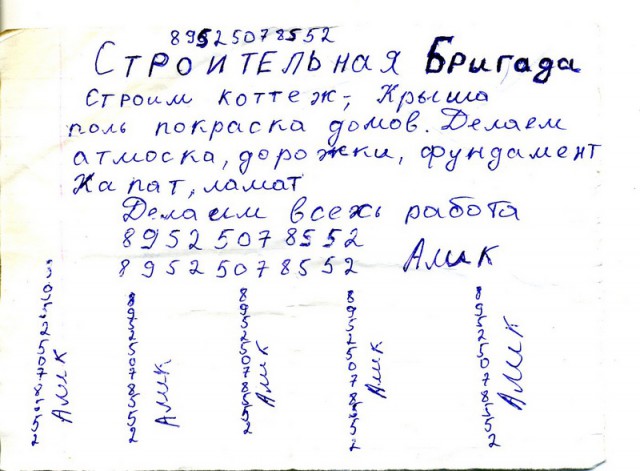 89525078552
СТРОИТЕЛЬНАЯ Бригада
Строим коттеж-, Крыша
поль покраска домов. Делаем
атмоска, дорожки, фундамент
Капат, ламат
Делаем всехь работа
89525078552
89525078552 Амик
89525078552 Амик
89525078552 Амик
89525078552 Амик
89525078552 Амик
89525078552 Амик